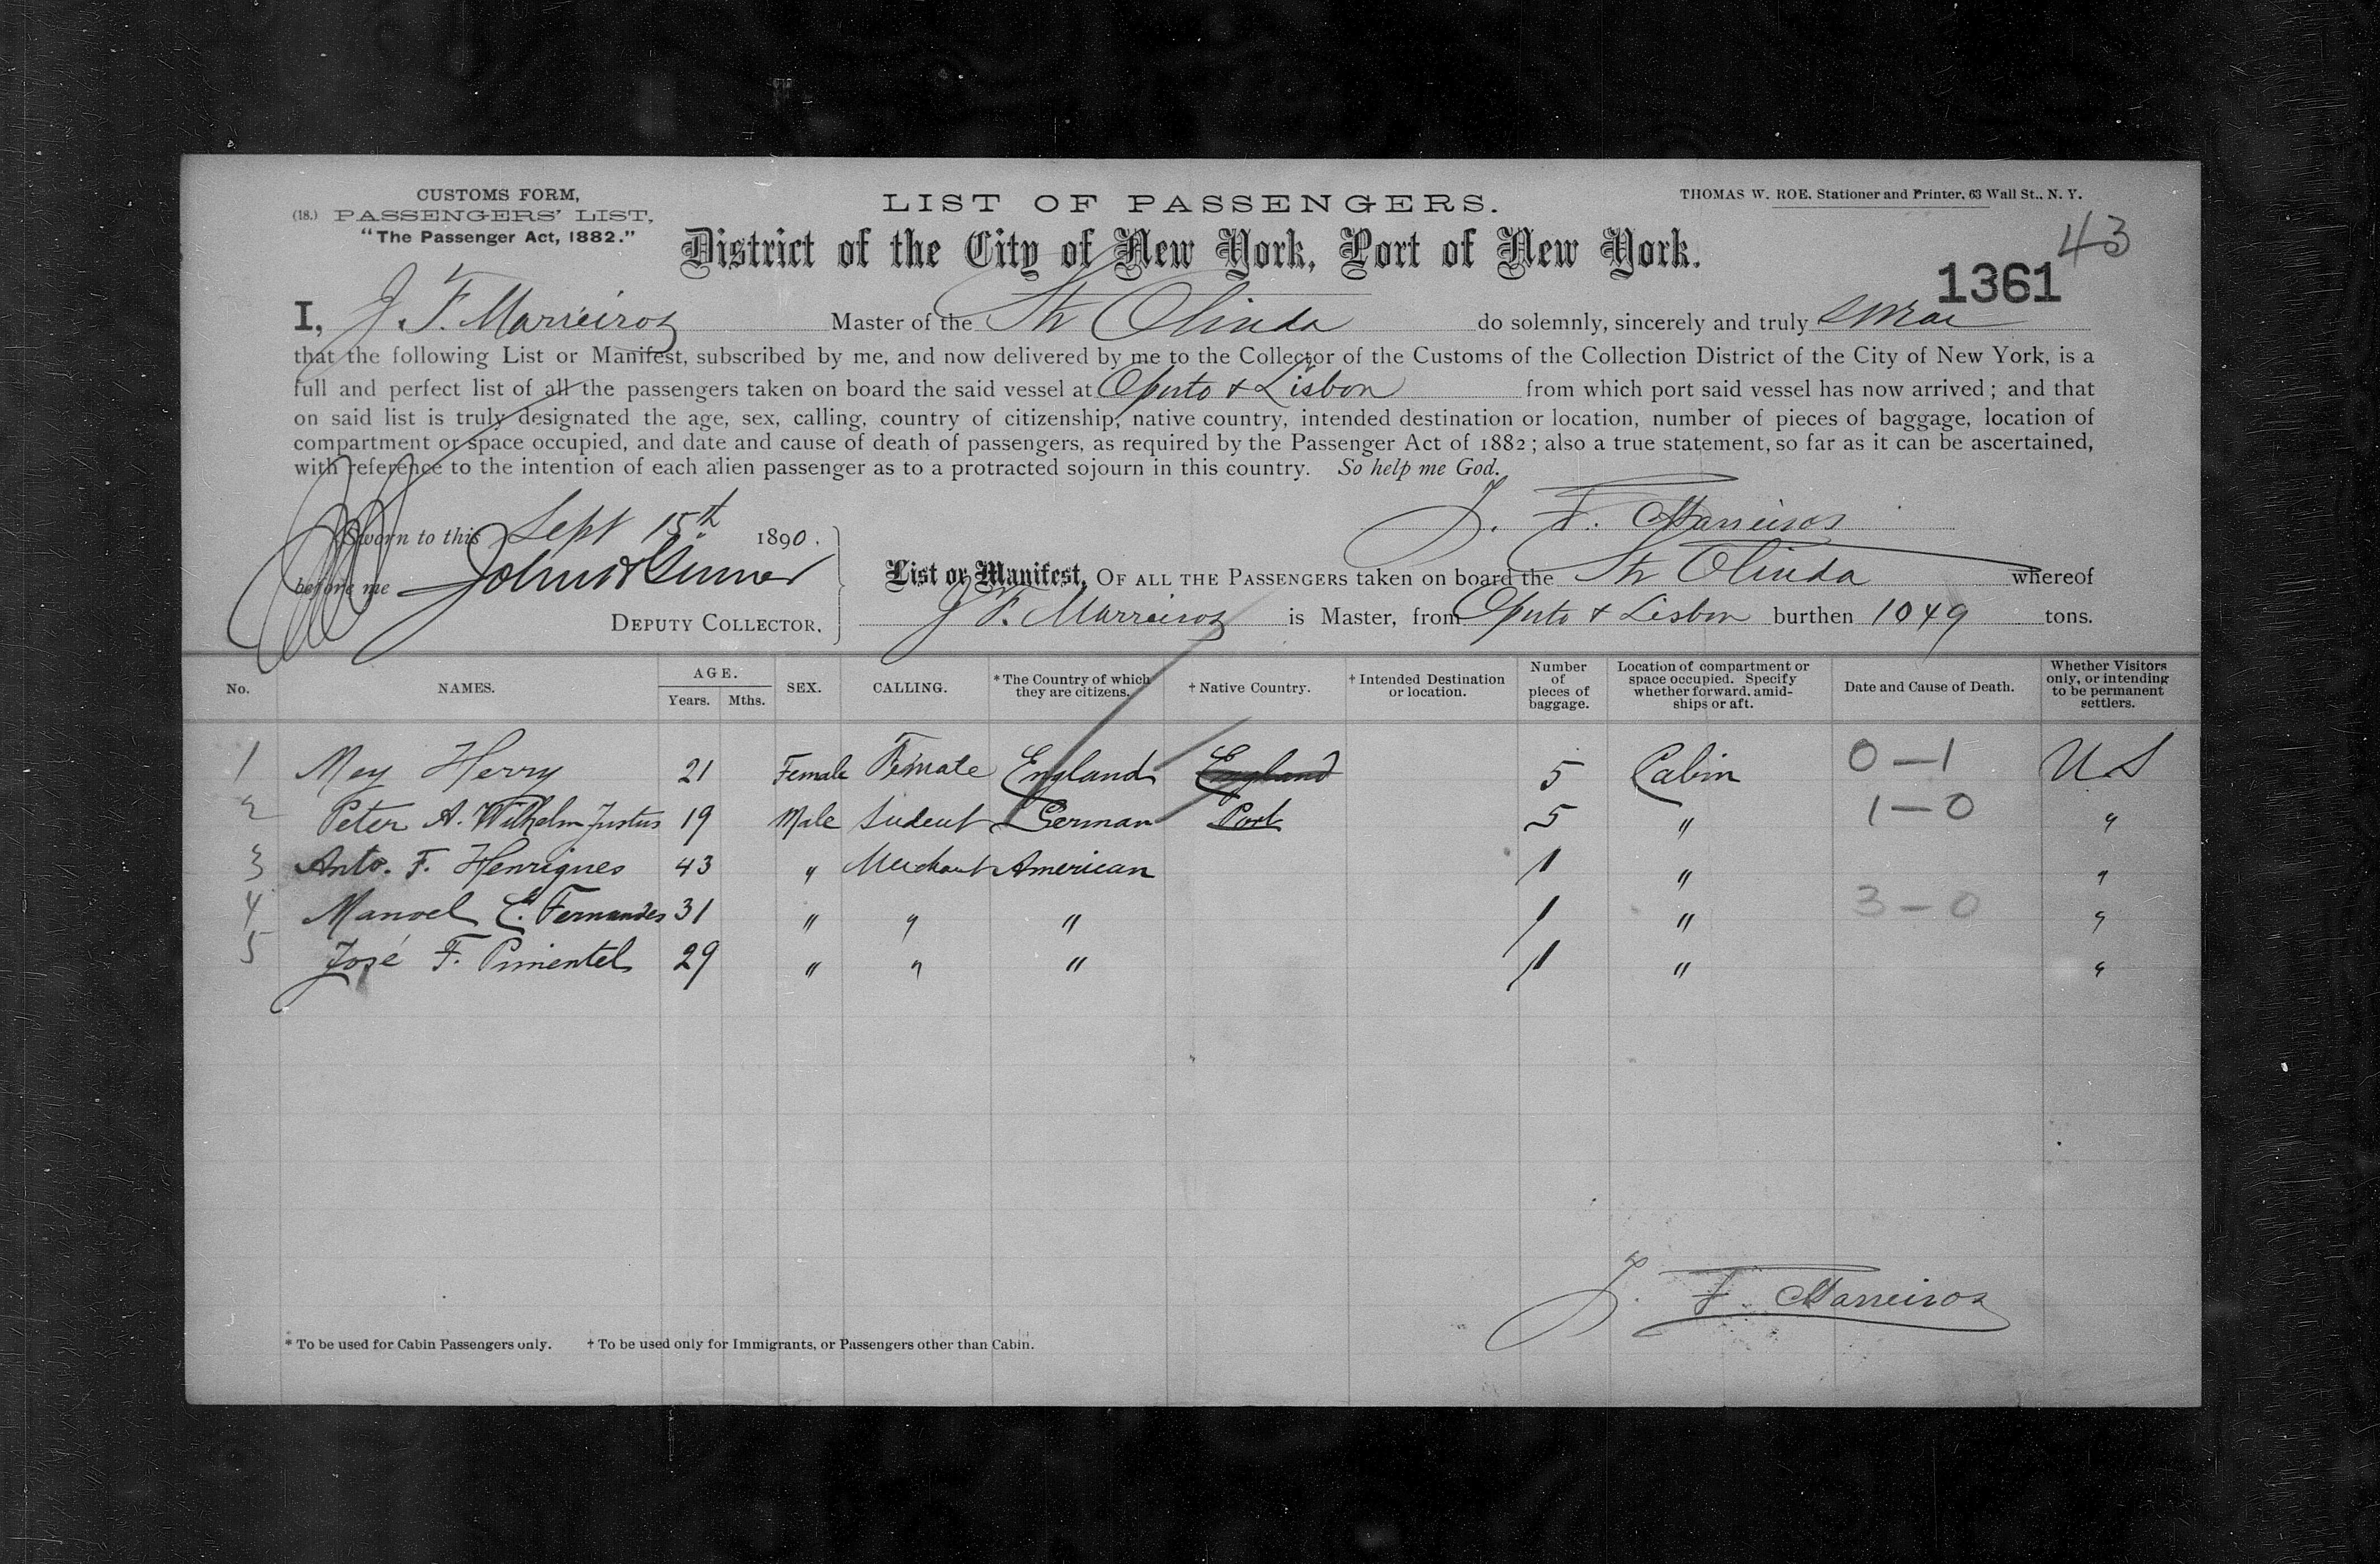 CUSTOMS FORM,
(18.) PASSENGERS' LIST,
"The Passenger Act, 1882."
LIST OF PASSENGERS.
THOMAS W. ROE. Stationer and Printer, 63 Wall St., N. Y.
District of the City of New York, Port of New York.
43
1361
I, J. F. Marreiros Master of the Str Olinda do solemnly, sincerely and truly swear
that the following List or Manifest, subscribed by me, and now delivered by me to the Collector of the Customs of the Collection District of the City of New York, is a
full and perfect list of all the passengers taken on board the said vessel at Oporto & Lisbon from which port said vessel has now arrived; and that
on said list is truly designated the age, sex, calling, country of citizenship, native country, intended destination or location, number of pieces of baggage, location of
compartment or space occupied, and date and cause of death of passengers, as required by the Passenger Act of 1882; also a true statement, so far as it can be ascertained,
with reference to the intention of each alien passenger as to a protracted sojourn in this country. So help me God.
J. F. Marreiros
Sworn to this Sept 15th 1890.
before me
DEPUTY COLLECTOR.
List or Manifest, OF ALL THE PASSENGERS taken on board the Str Olinda whereof
J. F. Marreiros is Master, from Oporto & Lisbon burthen 1049 tons.
No. NAMES. AGE. Years. Mths. SEX. CALLING. *The Country of which they are citizens. † Native Country. † Intended Destination or location. Number of pieces of baggage. Location of compartment or space occupied. Specify whether forward, amidships or aft. Date and Cause of Death. Whether Visitors only, or intending to be permanent settlers.
1 Mey Herry 21 Female Female England England 5 Cabin 0-1 U S
2 Peter A. Wilhelm Justus 19 Male Sudent German Port 5 " 1-0 "
3 Anto. F. Henriques 43 " Merchant American 1 " "
4 Manoel C. Fernandes 31 " " " 1 " 3-0 "
5 José F. Pimentel 29 " " " 1 " "
J. F. Marreiros
* To be used for Cabin Passengers only. † To be used only for Immigrants, or Passengers other than Cabin.